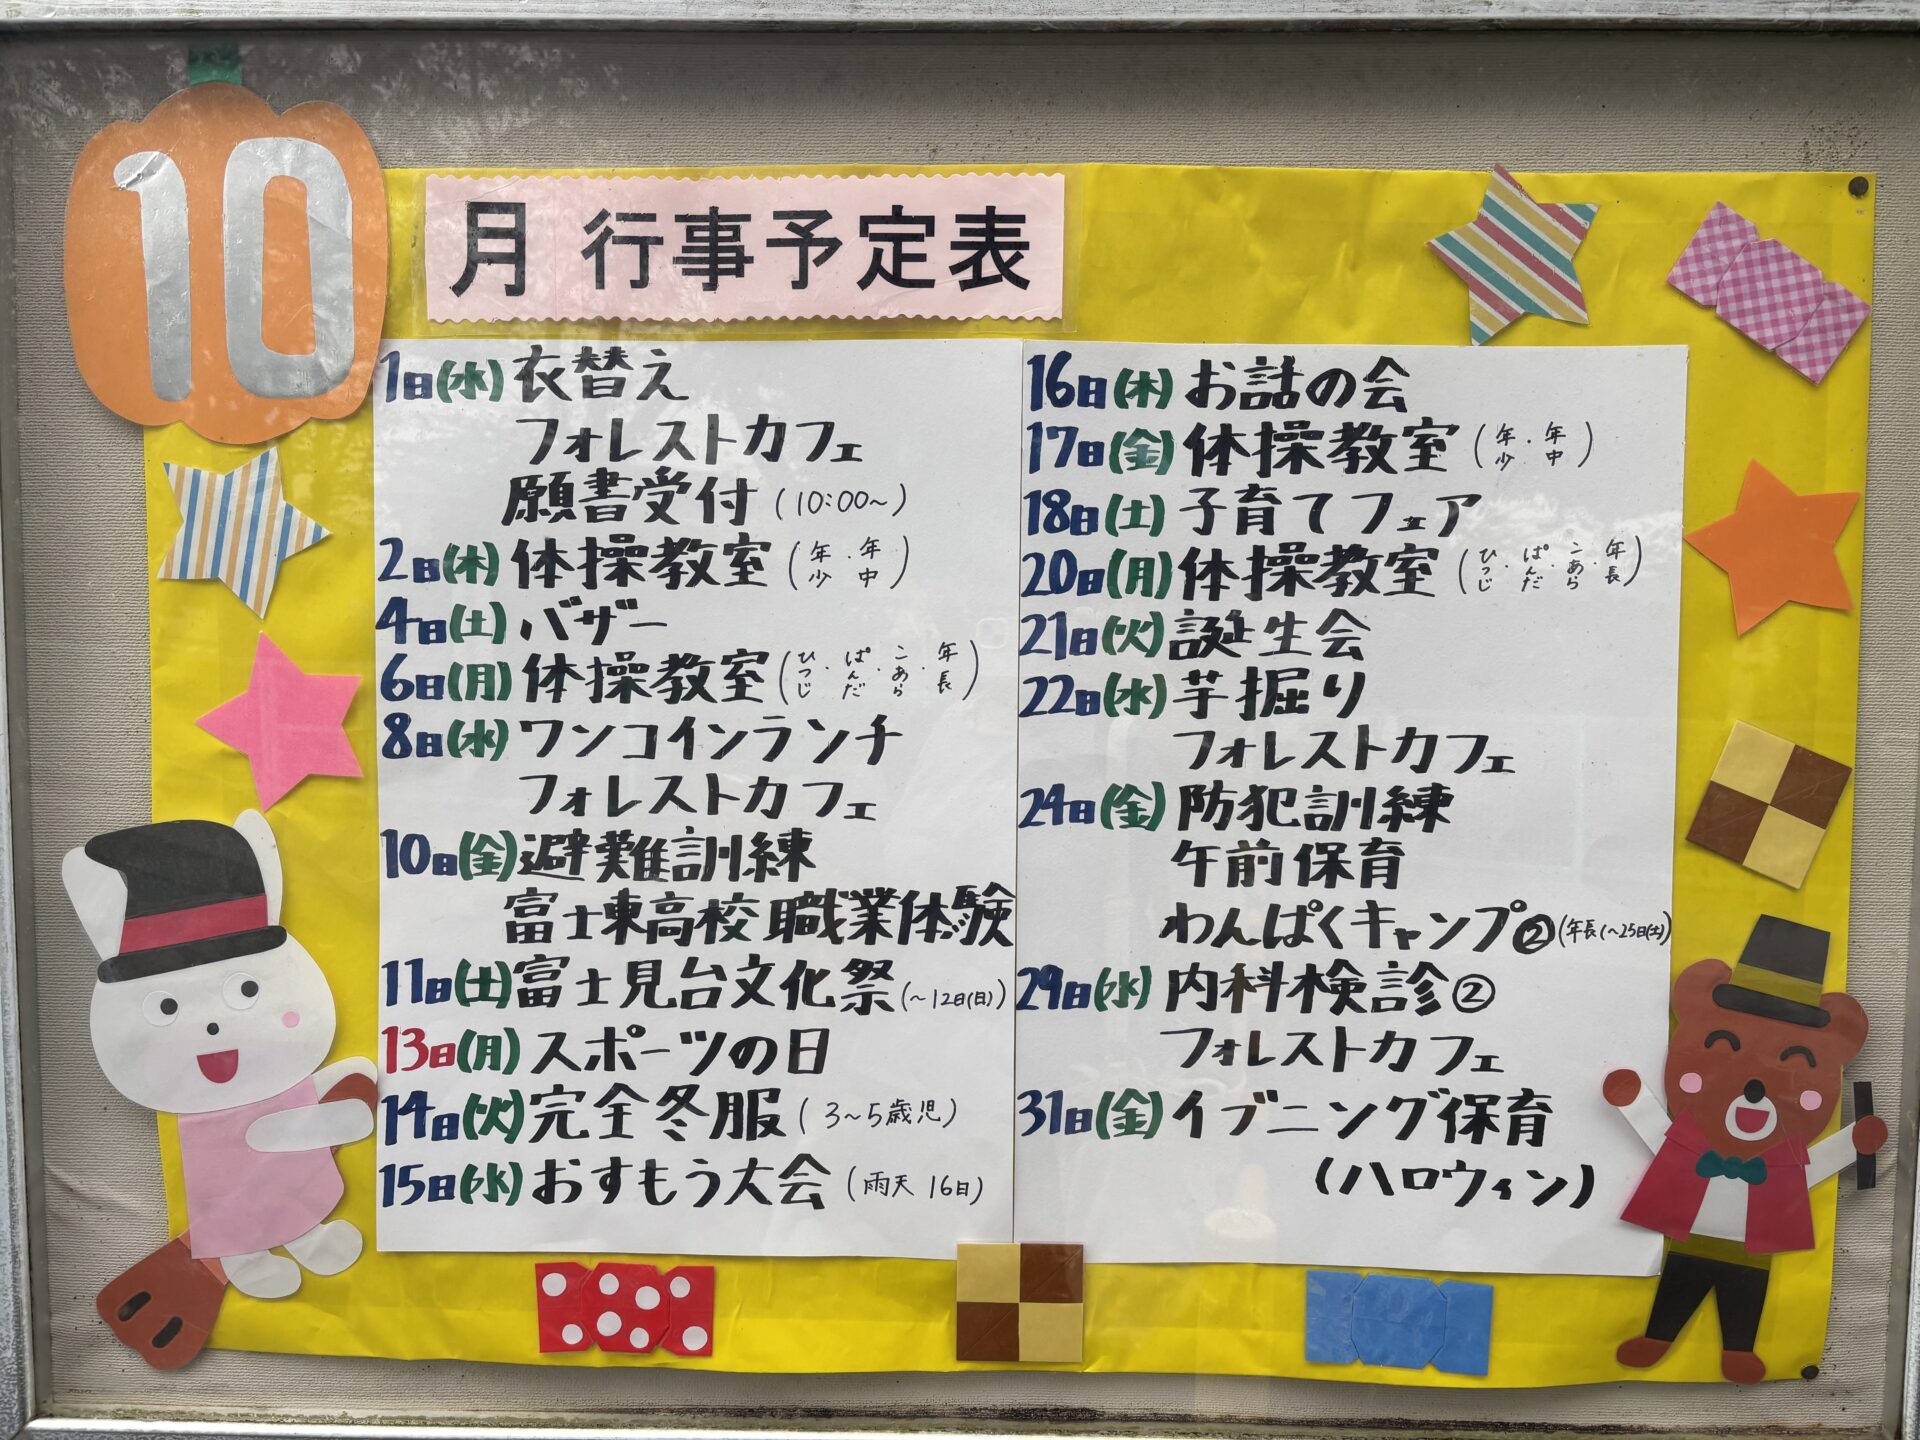 10
月 行事予定表
1日(水) 衣替え
フォレストカフェ
願書受付 (10:00~)
2日(木) 体操教室 (年少・年中)
4日(土) バザー
6日(月) 体操教室 (ひつじ・ぱんだ・こあら・年長)
8日(水) ワンコインランチ
フォレストカフェ
10日(金) 避難訓練
富士東高校 職業体験
11日(土) 富士見台文化祭 (~12日(日))
13日(月) スポーツの日
14日(火) 完全冬服 (3~5歳児)
15日(水) おすもう大会 (雨天 16日)
16日(木) お話の会
17日(金) 体操教室 (年少・年中)
18日(土) 子育てフェア
20日(月) 体操教室 (ひつじ・ぱんだ・こあら・年長)
21日(火) 誕生会
22日(水) 芋掘り
フォレストカフェ
24日(金) 防犯訓練
午前保育
わんぱくキャンプ② (年長(~25日(土))
29日(水) 内科検診②
フォレストカフェ
31日(金) イブニング保育
(ハロウィン)